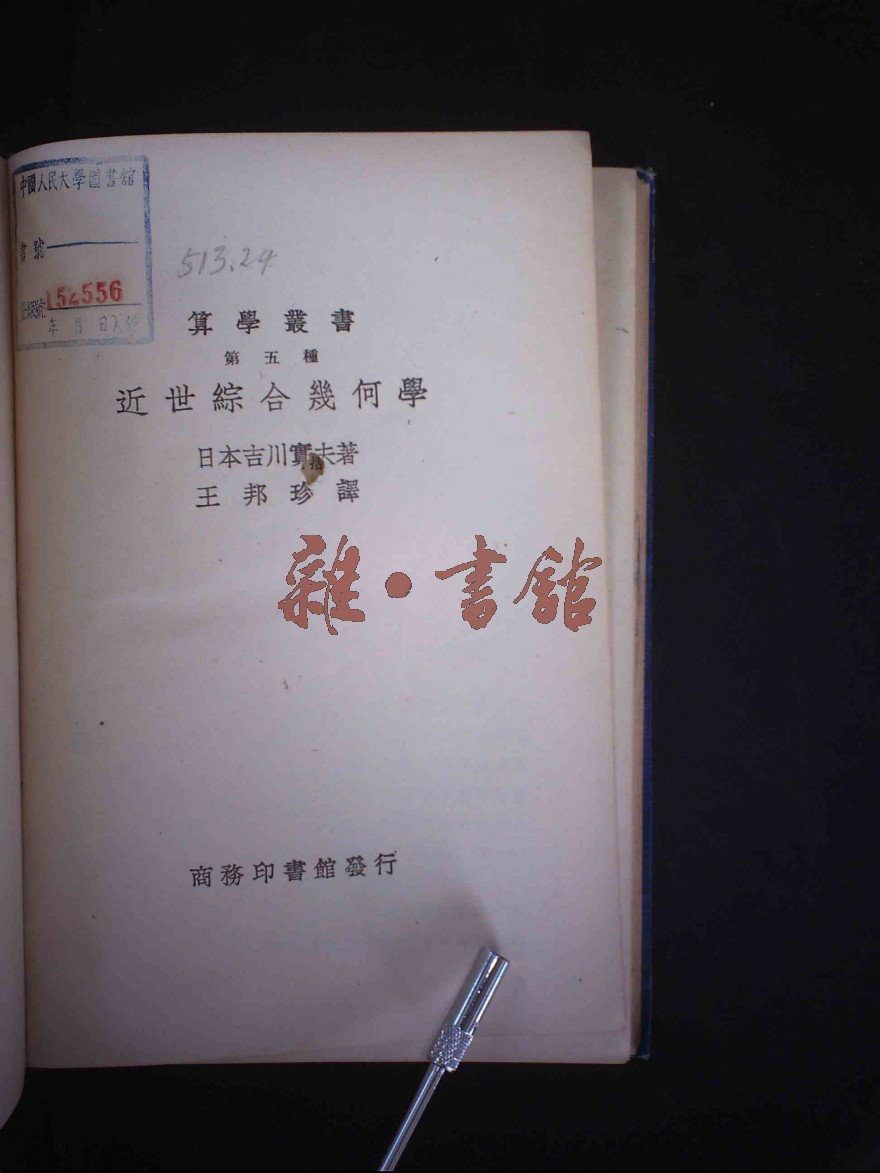 中國人民大學圖書館
書號
登錄號 152556
年 月 日
513.24
算學叢書
第五種
近世綜合幾何學
日本吉川實夫著
王邦珍譯
雜·書館
商務印書館發行